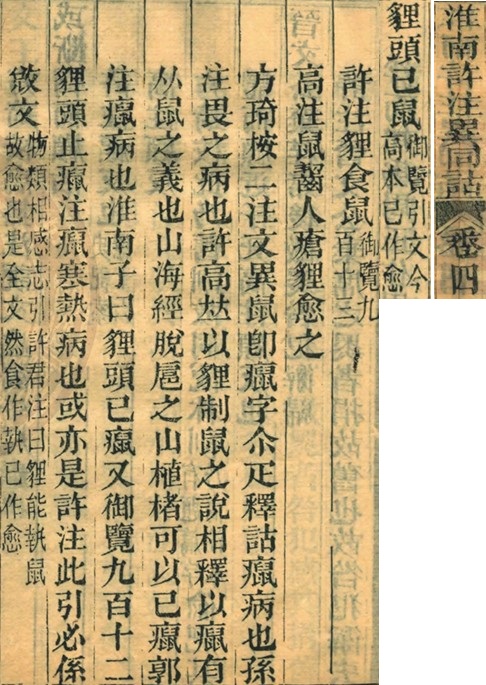 淮南許注異同詁 卷四
貍頭已鼠御覽引文今高本已作愈
許注貍食鼠御覽九百十三
高注鼠齧人瘡貍愈之
方琦桉二注文異鼠卽癙字尒疋釋詁癙病也孫
注畏之病也許高𠀤以貍制鼠之說相釋以癙有
从鼠之義也山海經脫扈之山植楮可以已癙郭
注癙病也淮南子曰貍頭已癙又御覽九百十二
貍頭止癙注癙寒熱病也或亦是許注此引必係
敚文物類相感志引許君注曰貍能執鼠故愈也是全文然食作執已作愈